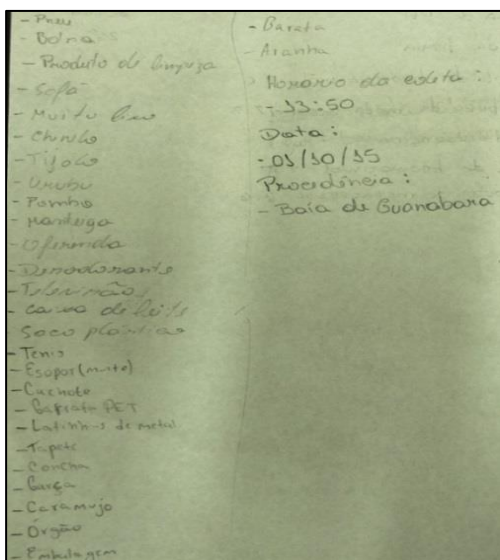 - Pneu
- Bolnais
- Produto de limpeza
- Sofá
- Muito lixo
- Chinelo
- Tijolo
- Urubu
- Pombo
- Manteiga
- Oferenda
- Desodorante
- Televisão
- Caixa de leite
- Saco plástico
- Tenis
- Esopor (muito)
- Cachote
- Garrafa PET
- Latinhas de metal
- Tapete
- Concha
- Garça
- Caramujo
- Órgão
- Embalagem
- Barata
- Aranha
Horário da coleta :
- 13:50
Data :
- 01/10/15
Procedência :
- Baía de Guanabara